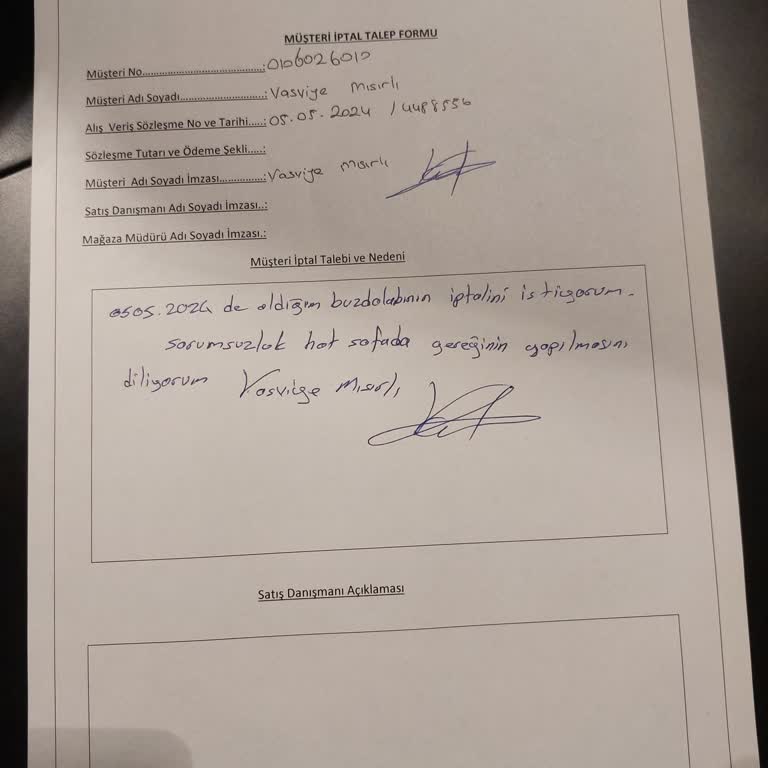 MÜŞTERİ İPTAL TALEP FORMU
Müşteri No..........................................:0106026012
Müşteri Adı Soyadı..............................:Vasviye Mısırlı
Alış Veriş Sözleşme No ve Tarihi.....:05.05.2024 / 4488556
Sözleşme Tutarı ve Ödeme Şekli.....:
Müşteri Adı Soyadı İmzası...............:Vasviye Mısırlı
Satış Danışmanı Adı Soyadı İmzası..:
Mağaza Müdürü Adı Soyadı İmzası.:
Müşteri İptal Talebi ve Nedeni
0505.2024 de aldığım buzdolabının iptalini istiyorum.
sorumsuzluk hat safada gereğinin yapılmasını
diliyorum Vasviye Mısırlı
Satış Danışmanı Açıklaması